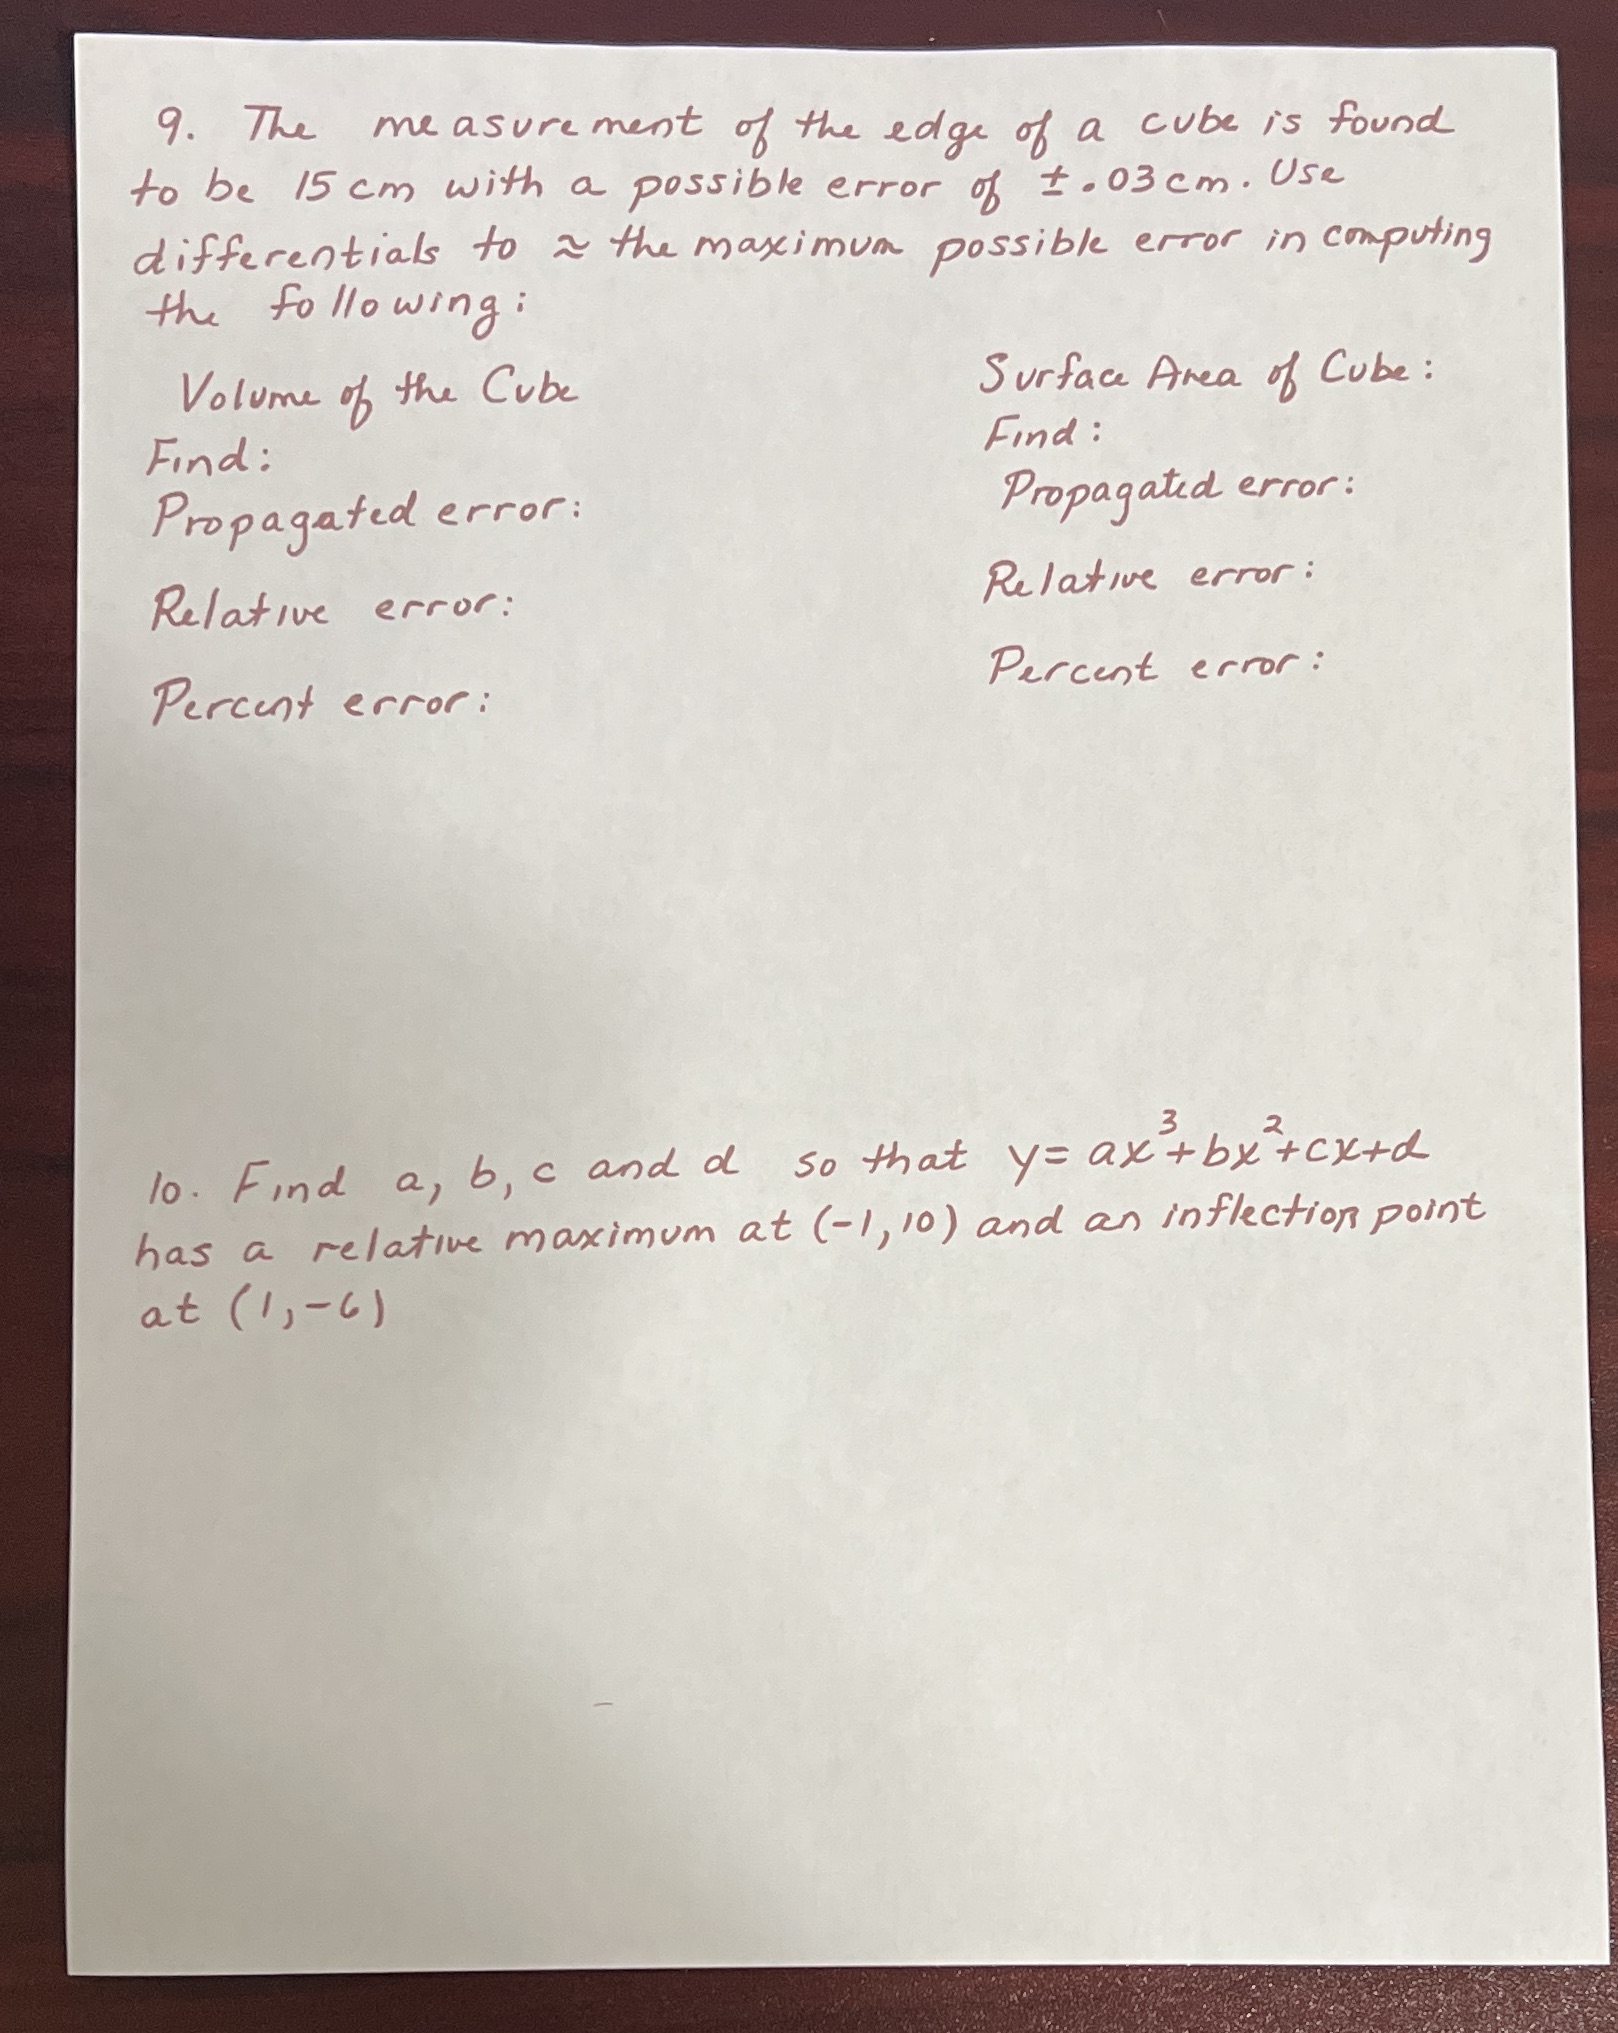 9. The measurement of the edge of a cube is found
to be 15 cm with a possible error of ±.03 cm. Use
differentials to ≈ the maximum possible error in computing
the following:
Volume of the Cube
Find:
Propagated error:
Relative error:
Percent error:
Surface Area of Cube:
Find:
Propagated error:
Relative error:
Percent error:
10. Find a, b, c and d so that y= ax³+bx²+cx+d
has a relative maximum at (-1,10) and an inflection point
at (1,-6)